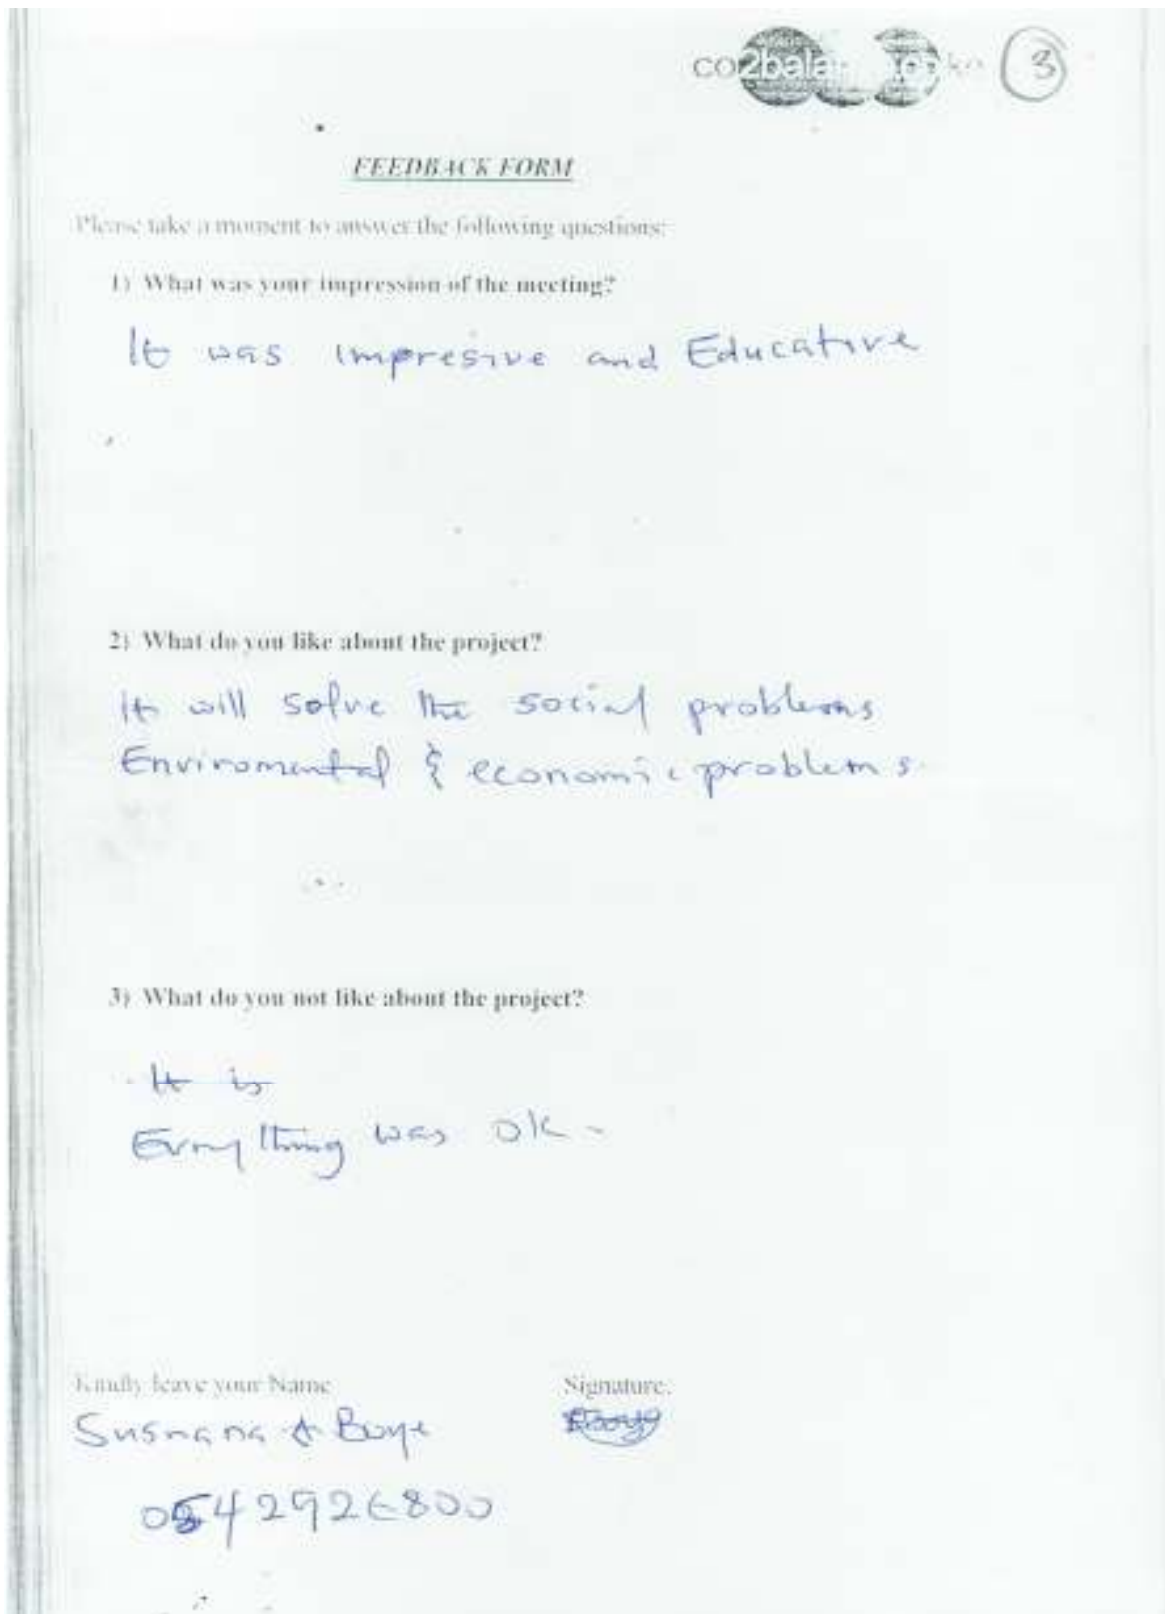 3
FEEDBACK FORM
Please take a moment to answer the following questions:
1) What was your impression of the meeting?
It was impresive and Educative
2) What do you like about the project?
It will solve the social problems
Enviromental & economic problems.
3) What do you not like about the project?
It is
Everything was ok -
Kindly leave your Name
Signature:
Boye